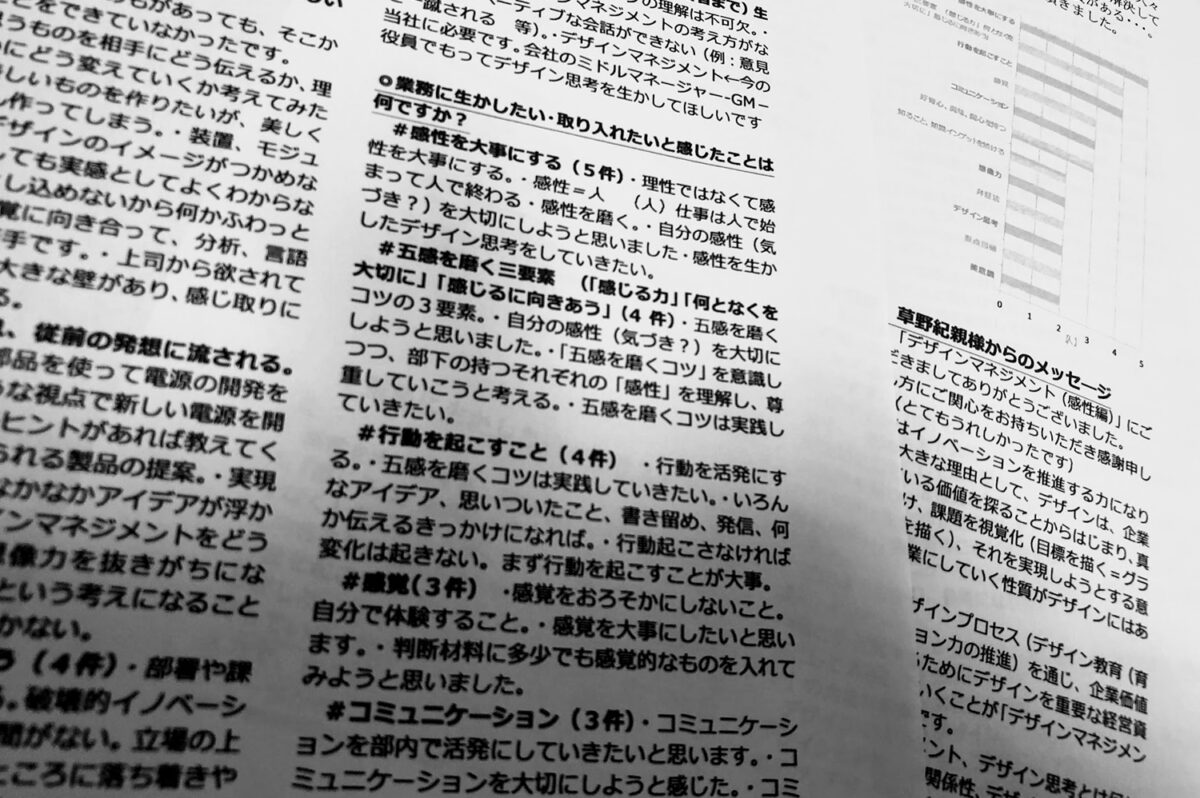 ものがあっても、そこか
とをできていなかったです。
うものを相手にどう伝えるか、理
にどう変えていくか考えてみた
しいものを作りたいが、美しく
し作ってしまう。・装置、モジュ
デザインのイメージがつかめな
ても実感としてよくわからな
し込めないから何かふわっと
覚に向き合って、分析、言語
手です。・上司から欲されて
大きな壁があり、感じ取りに
る。
、従前の発想に流される。
部品を使って電源の開発を
うな視点で新しい電源を開
ヒントがあれば教えてく
られる製品の提案。・実現
なかなかアイデアが浮か
インマネジメントをどう
想像力を抜きがちにな
という考えになること
かない。
う（4件）・部署や課
。破壊的イノベーシ
間がない。立場の上
ところに落ち着きや
の理解は不可欠。・
マネジメントの考え方がな
一蹴される　等）。・デザインマネジメント←今の
ーティブな会話ができない（例：意見
当社に必要です。会社のミドルマネージャー-GM－
役員でもってデザイン思考を生かしてほしいです
○業務に生かしたい・取り入れたいと感じたことは
何ですか？
＃感性を大事にする（5件）・理性ではなくて感
性を大事にする。・感性＝人　（人）仕事は人で始
まって人で終わる・感性を磨く。・自分の感性（気
づき？）を大切にしようと思いました・感性を生か
したデザイン思考をしていきたい。
＃五感を磨く三要素　（「感じる力」「何となくを
大切に」「感じるに向きあう」（4 件）・五感を磨く
コツの３要素。・自分の感性（気づき？）を大切に
しようと思いました。・「五感を磨くコツ」を意識し
つつ、部下の持つそれぞれの「感性」を理解し、尊
重していこうと考える。・五感を磨くコツは実践し
ていきたい。
＃行動を起こすこと（4件）　・行動を活発にす
る。・五感を磨くコツは実践していきたい。・いろん
なアイデア、思いついたこと、書き留め、発信、何
か伝えるきっかけになれば。・行動起こさなければ
変化は起きない。まず行動を起こすことが大事。
＃感覚（3件）　・感覚をおろそかにしないこと。
自分で体験すること。・感覚を大事にしたいと思い
ます。・判断材料に多少でも感覚的なものを入れて
みようと思いました。
＃コミュニケーション（3件）・コミュニケーシ
ョンを部内で活発にしていきたいと思います。・コ
ミュニケーションを大切にしようと感じた。・コミ
感性を大事にする
行動を起こすこと
感覚
コミュニケーション
想像力
デザイン思考
美意識
0 1 2 3 4 5
草野紀親様からのメッセージ
「デザインマネジメント（感性編）」にご
だきましてありがとうございました。
方にご関心をお持ちいただき感謝申し
（とてもうれしかったです）
はイノベーションを推進する力になり
大きな理由として、デザインは、企業
ている価値を探ることからはじまり、真
け、課題を視覚化（目標を描く＝グラ
を描く）、それを実現しようとする意
業にしていく性質がデザインにはあ
ザインプロセス（デザイン教育（育
ョン力の推進）を通じ、企業価値
るためにデザインを重要な経営資
いくことが「デザインマネジメン
です。
ント、デザイン思考とは
関係性、デザ